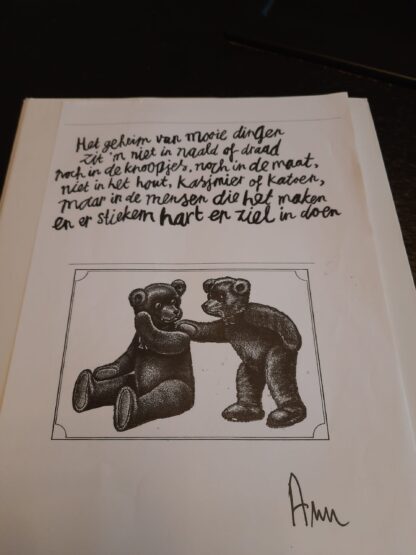 Het geheim van mooie dingen
zit 'm niet in naald of draad
noch in de knoopjes, noch in de maat,
niet in het hout, kasjmier of katoen,
maar in de mensen die het maken
en er stiekem hart en ziel in doen
Ann